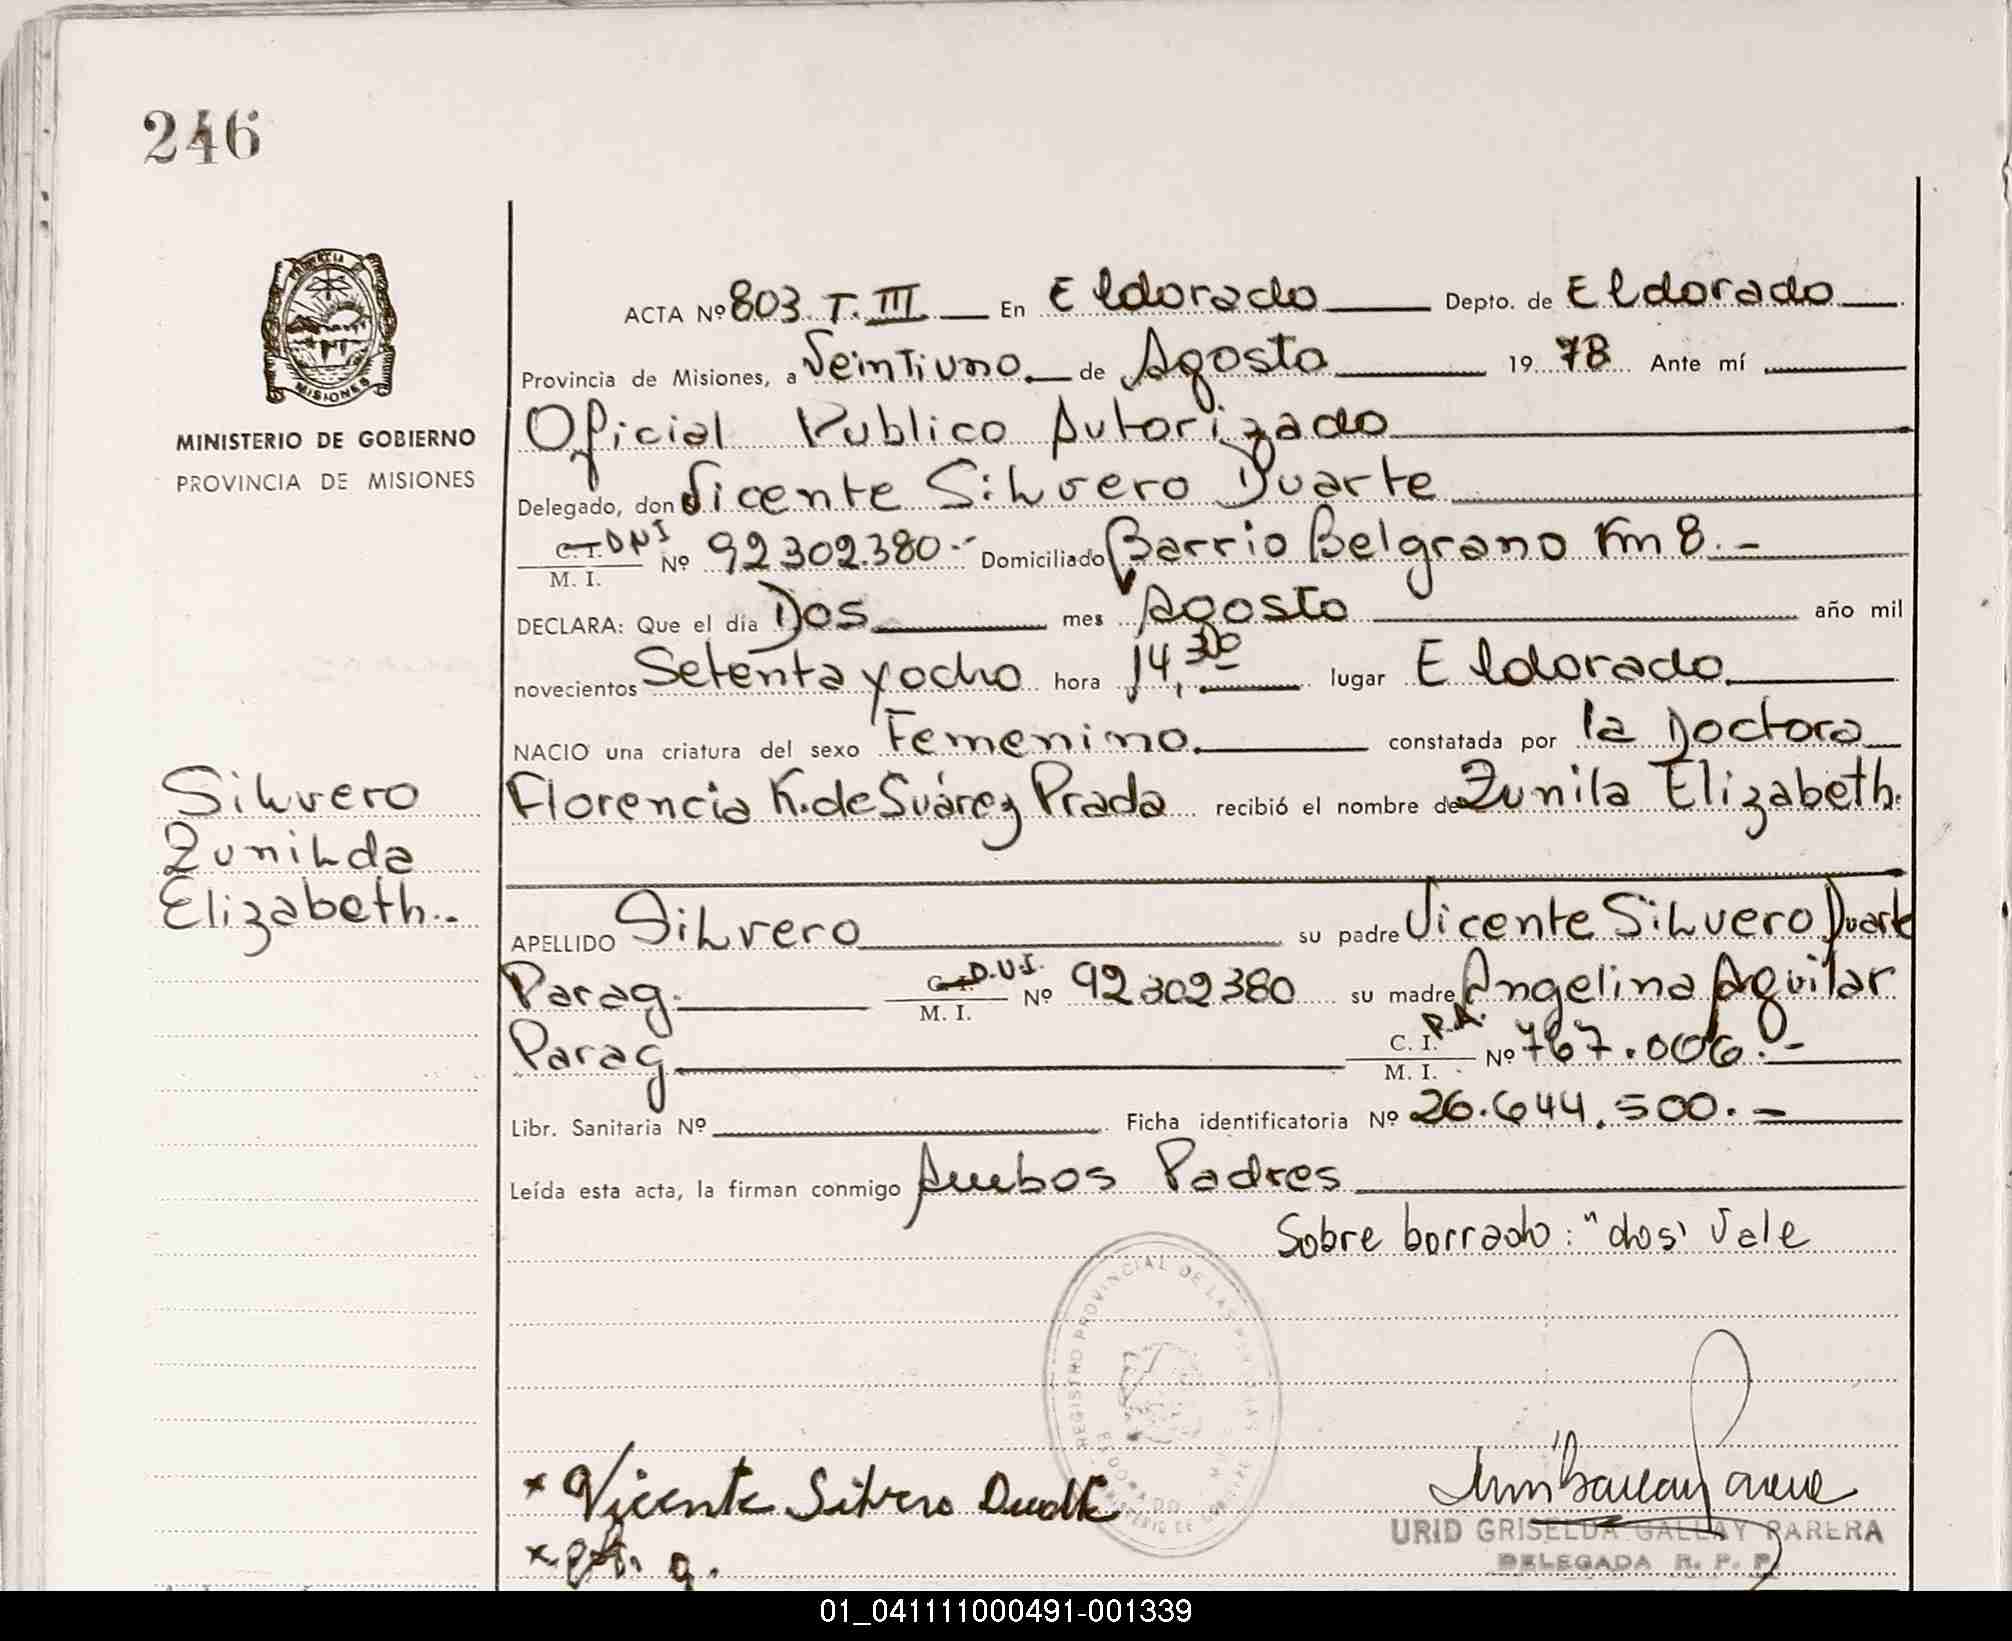 246
PROVINCIA
MISIONES
MINISTERIO DE GOBIERNO
PROVINCIA DE MISIONES
Silvero
Zunilda
Elizabeth.-
ACTA Nº 803 T. III En Eldorado Depto. de Eldorado
Provincia de Misiones, a Veintiuno de Agosto 19 78 Ante mí
Oficial Publico Autorizado
Delegado, don Vicente Silvero Duarte
C. I. DNI M. I. Nº 92302.380.- Domiciliado Barrio Belgrano Km 8.-
DECLARA: Que el día Dos mes Agosto año mil
novecientos Setenta y ocho hora 14,30 lugar Eldorado
NACIO una criatura del sexo Femenino. constatada por la Doctora
Florencia K. de Suárez Prada recibió el nombre de Zunila Elizabeth.
APELLIDO Silvero su padre Vicente Silvero Duarte
Parag. C. I. D.U.I. M. I. Nº 92302380 su madre Angelina Aguilar
Parag C. I. P.A. M. I. Nº 767.006.-
Libr. Sanitaria Nº Ficha identificatoria Nº 26.644.500.-
Leída esta acta, la firman conmigo Ambos Padres
Sobre borrado: "dos" Vale
REGISTRO PROVINCIAL DE LAS PERSONAS
ELDORADO
x Vicente Silvero Duarte
URID GRISELDA GALLAY PARERA
DELEGADA R. P. P.
x A. a.
01_041111000491-001339